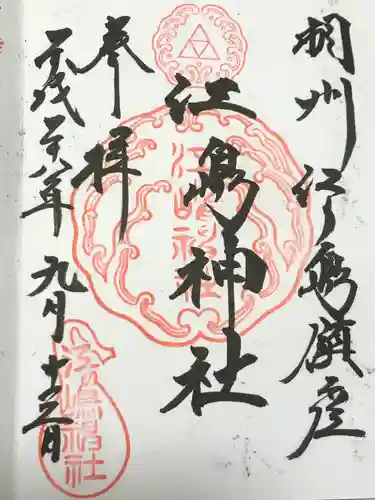 相州江ノ島鎮座
江島神社
奉拝
平成二十八年九月十日
江嶋神社
江嶋神社